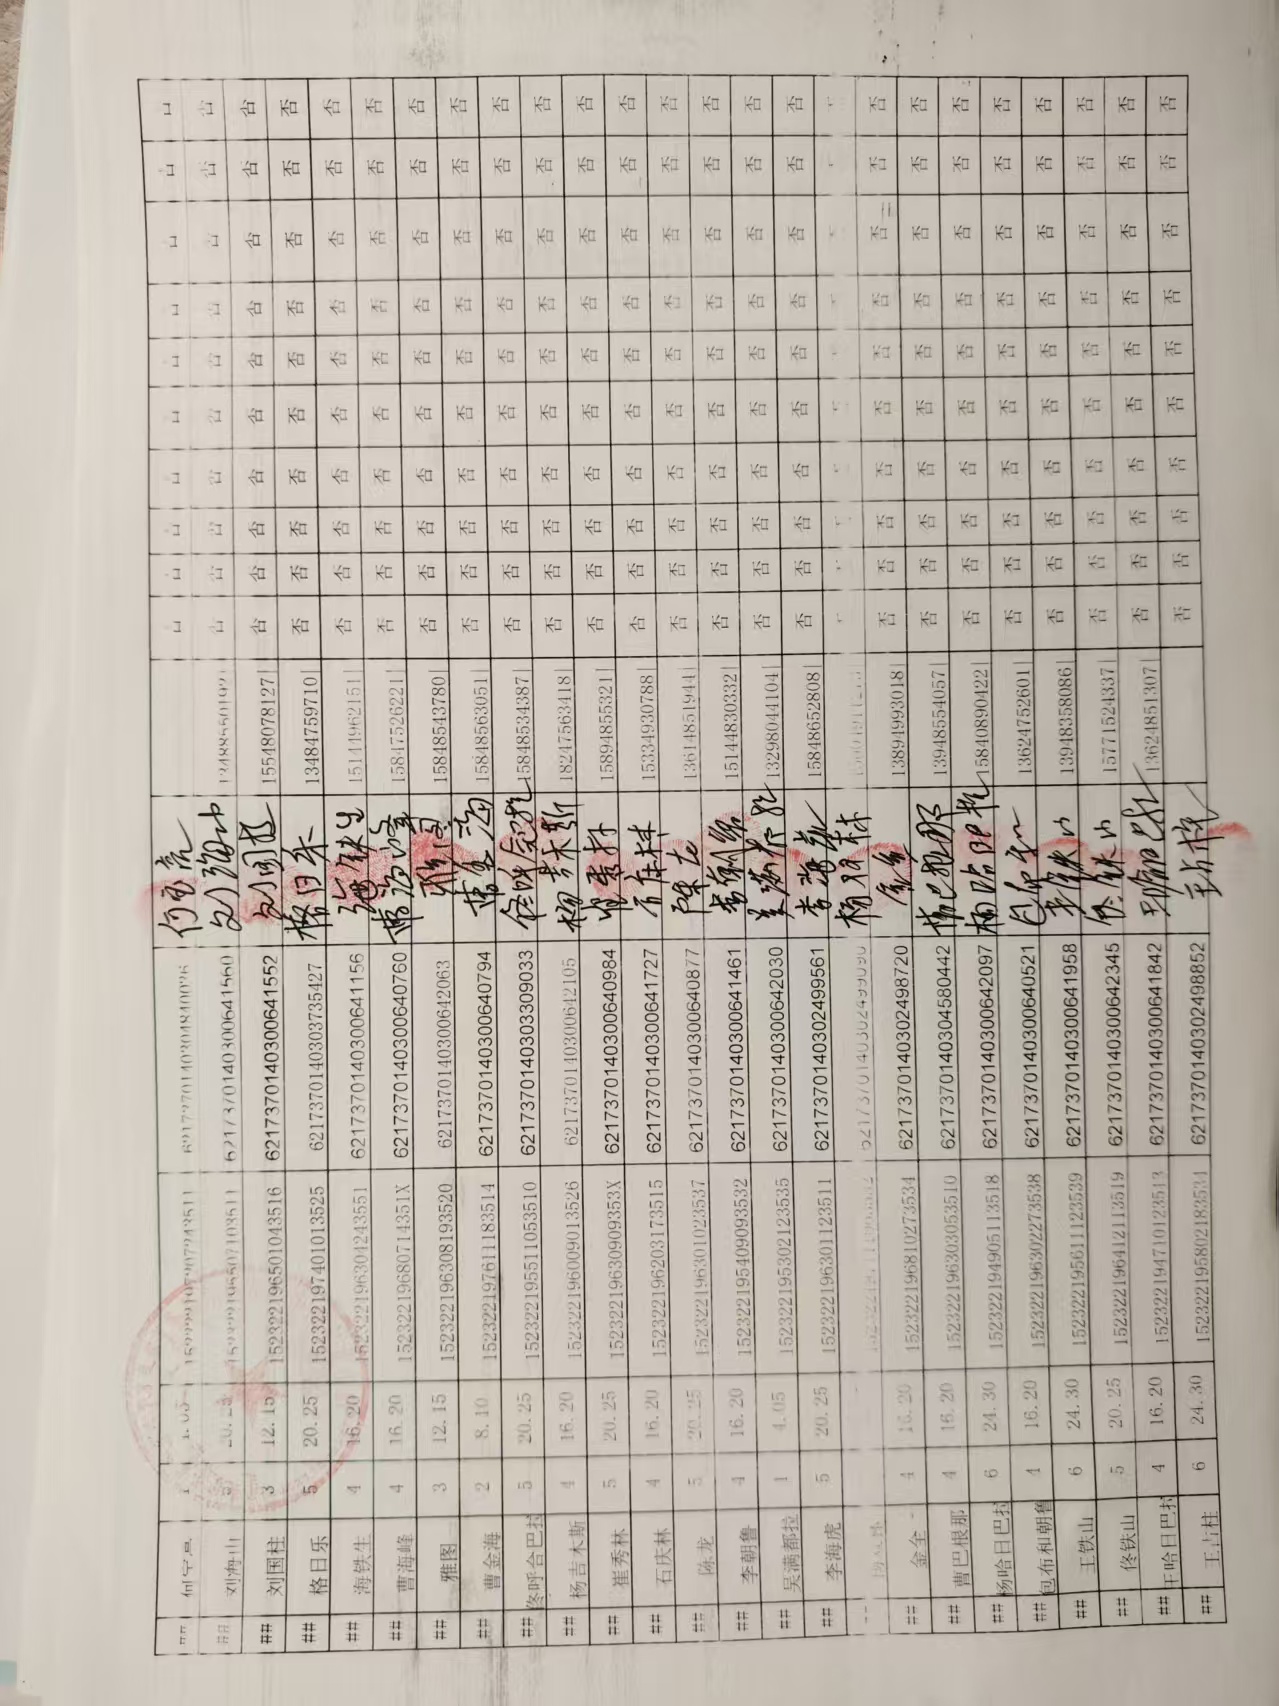 刘海山 6217370140300641560
## 刘国柱 3 12.15 152322196501043516 6217370140300641552 刘国柱 15548078127 否 否 否 否 否 否 否 否 否 否
## 格日乐 5 20.25 152322197401013525 6217370140303735427 格日乐 13484759710 否 否 否 否 否 否 否 否 否 否
## 海铁生 4 16.20 152322196304243551 6217370140300641156 海铁生 15144962151 否 否 否 否 否 否 否 否 否 否
## 曹海峰 4 16.20 15232219680714351X 6217370140300640760 曹海峰 15847526221 否 否 否 否 否 否 否 否 否 否
## 雅图 3 12.15 152322196308193520 6217370140300642063 雅图 15848543780 否 否 否 否 否 否 否 否 否 否
## 曹金海 2 8.10 152322197611183514 6217370140300640794 15848563051 否 否 否 否 否 否 否 否 否 否
## 佟呼合巴拉 5 20.25 152322195511053510 6217370140303309033 15848534387 否 否 否 否 否 否 否 否 否 否
## 杨吉木斯 4 16.20 152322196009013526 6217370140300642105 杨吉木斯 18247563418 否 否 否 否 否 否 否 否 否 否
## 崔秀林 5 20.25 15232219630909353X 6217370140300640984 15894855321 否 否 否 否 否 否 否 否 否 否
## 石庆林 4 16.20 152322196203173515 6217370140300641727 石庆林 15334930788 否 否 否 否 否 否 否 否 否 否
## 陈龙 5 20.25 152322196301023537 6217370140300640877 陈龙 13614851944 否 否 否 否 否 否 否 否 否 否
## 李朝鲁 4 16.20 152322195409093532 6217370140300641461 李朝鲁 15144830332 否 否 否 否 否 否 否 否 否 否
## 吴满都拉 1 4.05 152322195302123535 6217370140300642030 13298044104 否 否 否 否 否 否 否 否 否 否
## 李海虎 5 20.25 152322196301123511 6217370140302499561 李海虎 15848652808 否 否 否 否 否 否 否 否 否 否
杨双林
## 金全 4 16.20 152322196810273534 6217370140302498720 金全 13894993018 否 否 否 否 否 否 否 否 否 否
## 曹巴根那 4 16.20 152322196303053510 6217370140304580442 13948554057 否 否 否 否 否 否 否 否 否 否
## 杨哈日巴拉 6 24.30 152322194905113518 6217370140300642097 杨哈日巴拉 15840890422 否 否 否 否 否 否 否 否 否 否
## 包布和朝鲁 4 16.20 152322196302273538 6217370140300640521 13624752601 否 否 否 否 否 否 否 否 否 否
## 王铁山 6 24.30 152322195611123539 6217370140300641958 王铁山 13948358086 否 否 否 否 否 否 否 否 否 否
## 佟铁山 5 20.25 152322196412113519 6217370140300642345 佟铁山 15771524337 否 否 否 否 否 否 否 否 否 否
## 王哈日巴拉 4 16.20 152322194710123513 6217370140300641842 王哈日巴拉 13624851307 否 否 否 否 否 否 否 否 否 否
## 王占柱 6 24.30 152322195802183531 6217370140302498852 王占柱 否 否 否 否 否 否 否 否 否 否